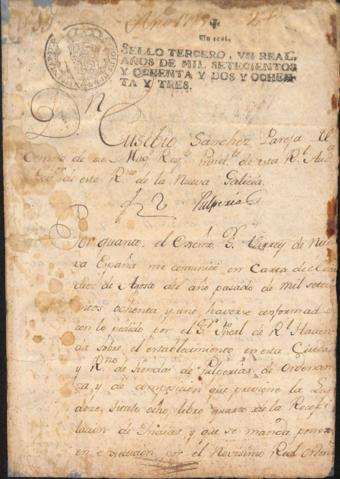 Un real.
SELLO TERCERO, VN REAL,
AÑOS DE MIL SETECIENTOS
Y OCHENTA Y DOS Y OCHEN-
TA Y TRES.
Eusebio Sanchez Pareja El
Consejo de su Mag. Reg.te de esta R.l Aud.a
de este R.no de la Nueva Galicia.
Pulperia
Por quanto, el Exc.mo S.r Virrey de Nue-
va España me comunicó en Carta de
dies de Agosto del año pasado de mil sete-
cientos ochenta y uno haverse conformado
con lo pedido por el S.r Fiscal de R.l Hacien-
da sobre el establecimiento en esta Ciudad
y R.no de tiendas de Pulperias de Ordenan-
za, y de composicion que previene la Ley
doze, titulo ocho, libro quarto de la Recopi-
lacion de Indias, y que se manda poner
en execucion por el Novisimo Real orden